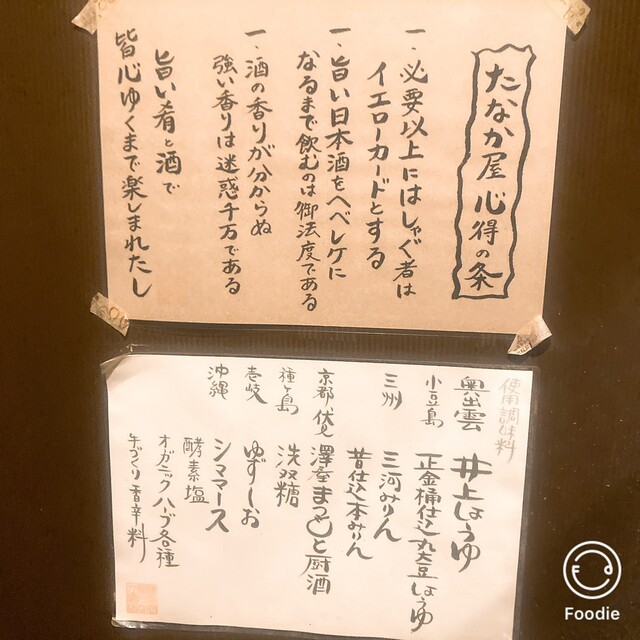 たなか屋 心得の条
一、必要以上にはしゃぐ者は
イエローカードとする
一、旨い日本酒をヘベレケに
なるまで飲むのは御法度である
一、酒の香りが分からぬ
強い香りは迷惑千万である
旨い肴と酒で
皆心ゆくまで楽しまれたし
使用調味料
奥出雲 井上しょうゆ
小豆島 正金桶仕込丸大豆しょうゆ
三州 三河みりん
昔仕込本みりん
京都伏見 澤屋まつもと厨酒
種子島 洗双糖
壱岐 ゆずしお
沖縄 シママース
酵素塩
オーガニックハーブ各種
手づくり香辛料
Foodie